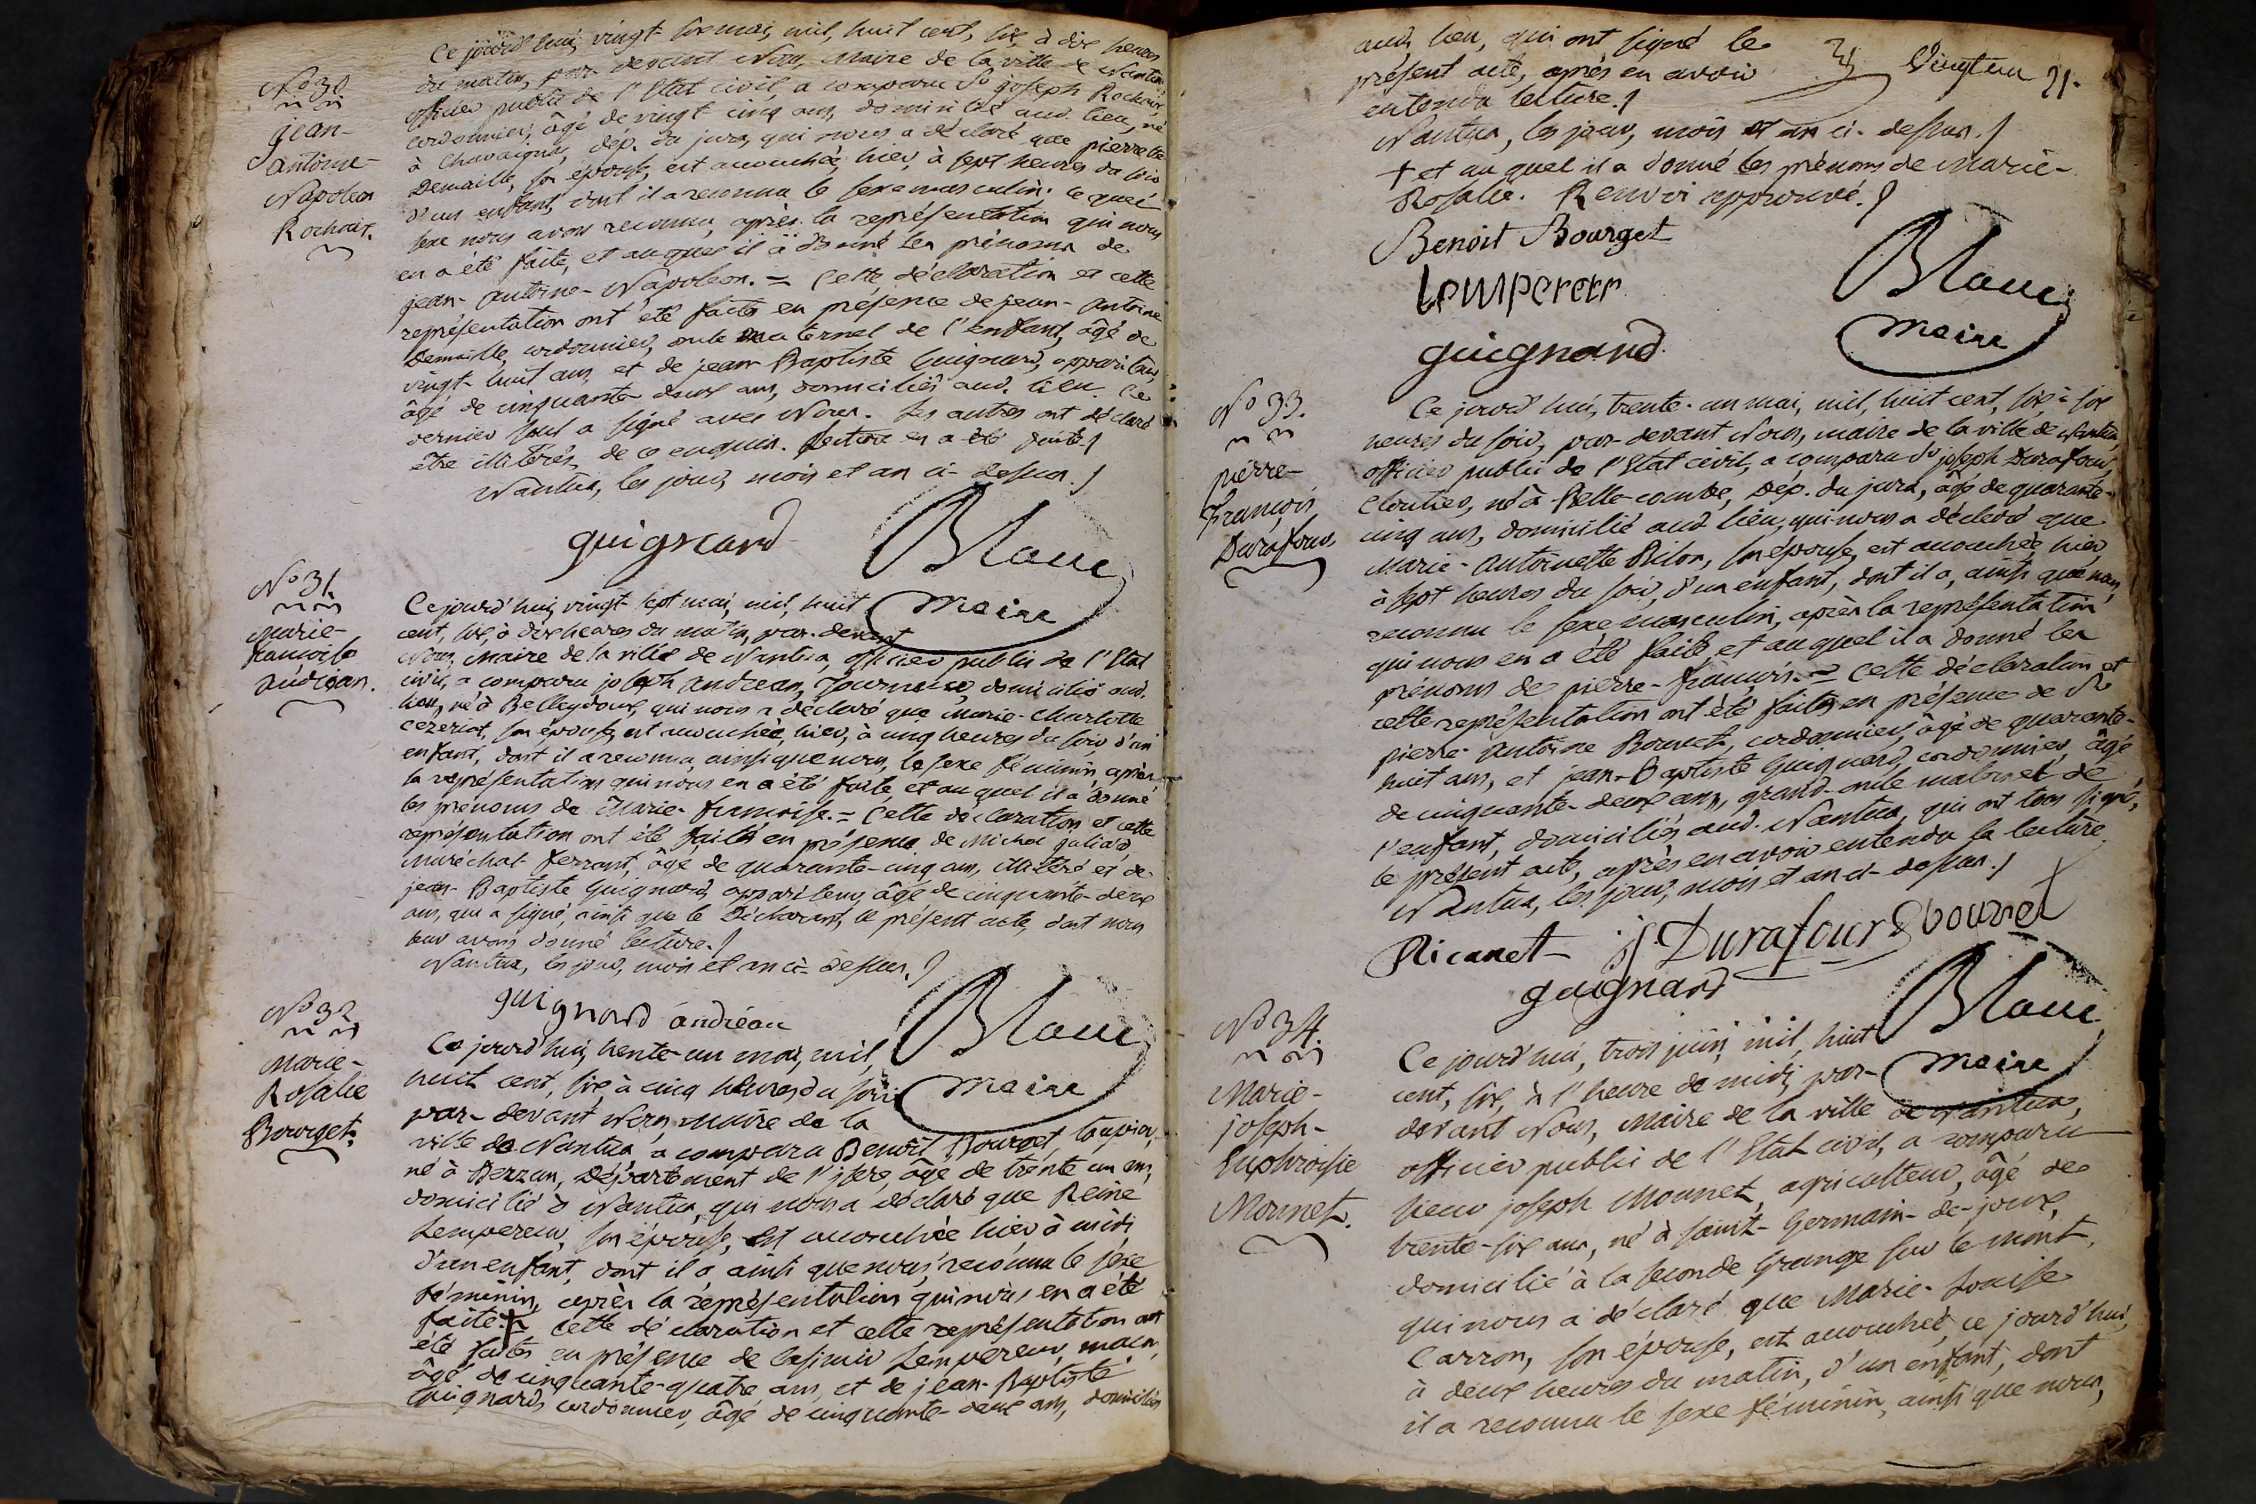 Ce jourd'hui, vingt-six mai, mil, huit cent, six, à dix heures
du matin, par-devant Nous, Maire de la ville de Nantua
officier public de l'Etat civil, a comparu Sr joseph Rochaix,
cordonnier, âgé de vingt cinq ans, domicilié aud. lieu, né
à Chavaignat, dép. du jura, qui nous a déclaré que pierrette
Demaille, son épouse, est accouchée, hier, à sept heures du soir
d'un enfant, dont il a reconnu le sexe masculin. ce quel
sexe nous avons reconnu, après la représentation qui nous
en a été faite, et auquel il a donné les prénoms de
jean-antoine-Napoleon. = Cette déclaration et cette
représentation ont été faites en présence de jean-antoine
Demaille, cordonnier, oncle maternel de l'enfant, âgé de
vingt-huit ans, et de jean Baptiste Guignard, appariteur,
âgé de cinquante deux ans, domiciliés aud. lieu. Ce
dernier seul a signé avec Nous. Les autres ont déclaré
être illitérés, de ce enquis. Lecture en a été faite.
Nantua, les jour, mois et an ci-dessus.
No 30.
jean-
antoine-
Napoleon
Rochaix.
guignard
Blanc
maire
No 31.
Marie-
francoise
andréan.
Ce jourd'hui, vingt-sept mai, mil, huit
cent, six, à dix heures du matin, par-devant
Nous, Maire de la ville de Nantua, officier public de l'Etat
civil, a comparu joseph andréan, domicilié aud.
lieu, né à Belleydoux, qui nous a déclaré que Marie-Charlotte
Cezeriat, son épouse, est accouchée, hier, à cinq heures du soir d'un
enfant, dont il a reconnu, ainsi que nous, le sexe féminin, après
la représentation qui nous en a été faite, et auquel il a donné
les prénoms de Marie-françoise. = Cette déclaration et cette
représentation ont été faites en présence de Michel galiard,
Maréchal-ferrant, âgé de quarante-cinq ans, illitéré et de
jean-Baptiste Guignard, appariteur, âgé de cinquante-deux
ans, qui a signé, ainsi que le Déclarant, le présent acte, dont nous
leur avons donné lecture.
Nantua, les jour, mois et an ci-dessus.
guignard andréan
Blanc
maire
No 32.
Marie-
Rosalie
Bourget.
Ce jourd'hui, trente-un mai, mil,
huit cent, six, à cinq heures du soir
par-devant Nous, Maire de la
ville de Nantua, a comparu Benoit Bourget, taupier,
né à Bezzan, Département de l'jsère, âgé de trente un ans,
domicilié à Nantua, qui nous a déclaré que Reine
Lempereur, son épouse, est accouchée hier à midi,
d'un enfant, dont il a ainsi que nous, reconnu le sexe
féminin, après la représentation qui nous en a été
faite. + Cette déclaration et cette représentation ont
été faites en présence de Casimir Lempereur, maçon,
âgé de cinquante-quatre ans, et de jean-Baptiste
Guignard, cordonnier, âgé de cinquante-deux ans, domiciliés
aud. lieu, qui ont signé le
présent acte, après en avoir
entendu lecture.
Nantua, les jour, mois et an ci-dessus.
+ et au quel il a donné les prénoms de Marie-
Rosalie. Renvoi approuvé.
Vingt un 21.
Benoit Bourget
Lempereur
guignard
Blanc
maire
No 33.
pierre-
François
Durafour.
Ce jourd'hui, trente-un mai, mil, huit cent, six, à six
heures du soir, par-devant Nous, maire de la ville de Nantua,
officier public de l'Etat civil, a comparu Sr joseph Durafour,
Cloutier, né à Bellecombe, Dép. du jura, âgé de quarante-
cinq ans, domicilié aud. lieu, qui nous a déclaré que
Marie-antoinette Pilon, son épouse, est accouchée, hier,
à sept heures du soir, d'un enfant, dont il a, ainsi que nous,
reconnu le sexe masculin, après la représentation
qui nous en a été faite, et auquel il a donné les
prénoms de pierre-françois. = Cette déclaration et
cette représentation ont été faites en présence de Sr
pierre antoine Bouvet, cordonnier, âgé de quarante-
huit ans, et jean-Baptiste Guignard, cordonnier, âgé
de cinquante-deux ans, grand-oncle maternel de
l'enfant, domiciliés aud. Nantua, qui ont tous signé,
le présent acte, après en avoir entendu la lecture.
Nantua, les jour, mois et an ci-dessus.
Ricanet jf Durafour Bouvet
guignard
Blanc
maire
No 34.
Marie-
joseph-
Euphrosie
Monnet.
Ce jourd'hui, trois juin, mil, huit
cent, six, à l'heure de midi, par-
devant Nous, Maire de la ville de Nantua,
officier public de l'Etat civil, a comparu
sieur joseph Monnet, agriculteur, âgé de
trente-six ans, né à saint-Germain-de-joux,
domicilié à la seconde Grange sur le mont,
qui nous a déclaré que Marie-Louise
Carron, son épouse, est accouchée, ce jourd'hui,
à deux heures du matin, d'un enfant, dont
il a reconnu le sexe féminin, ainsi que nous,